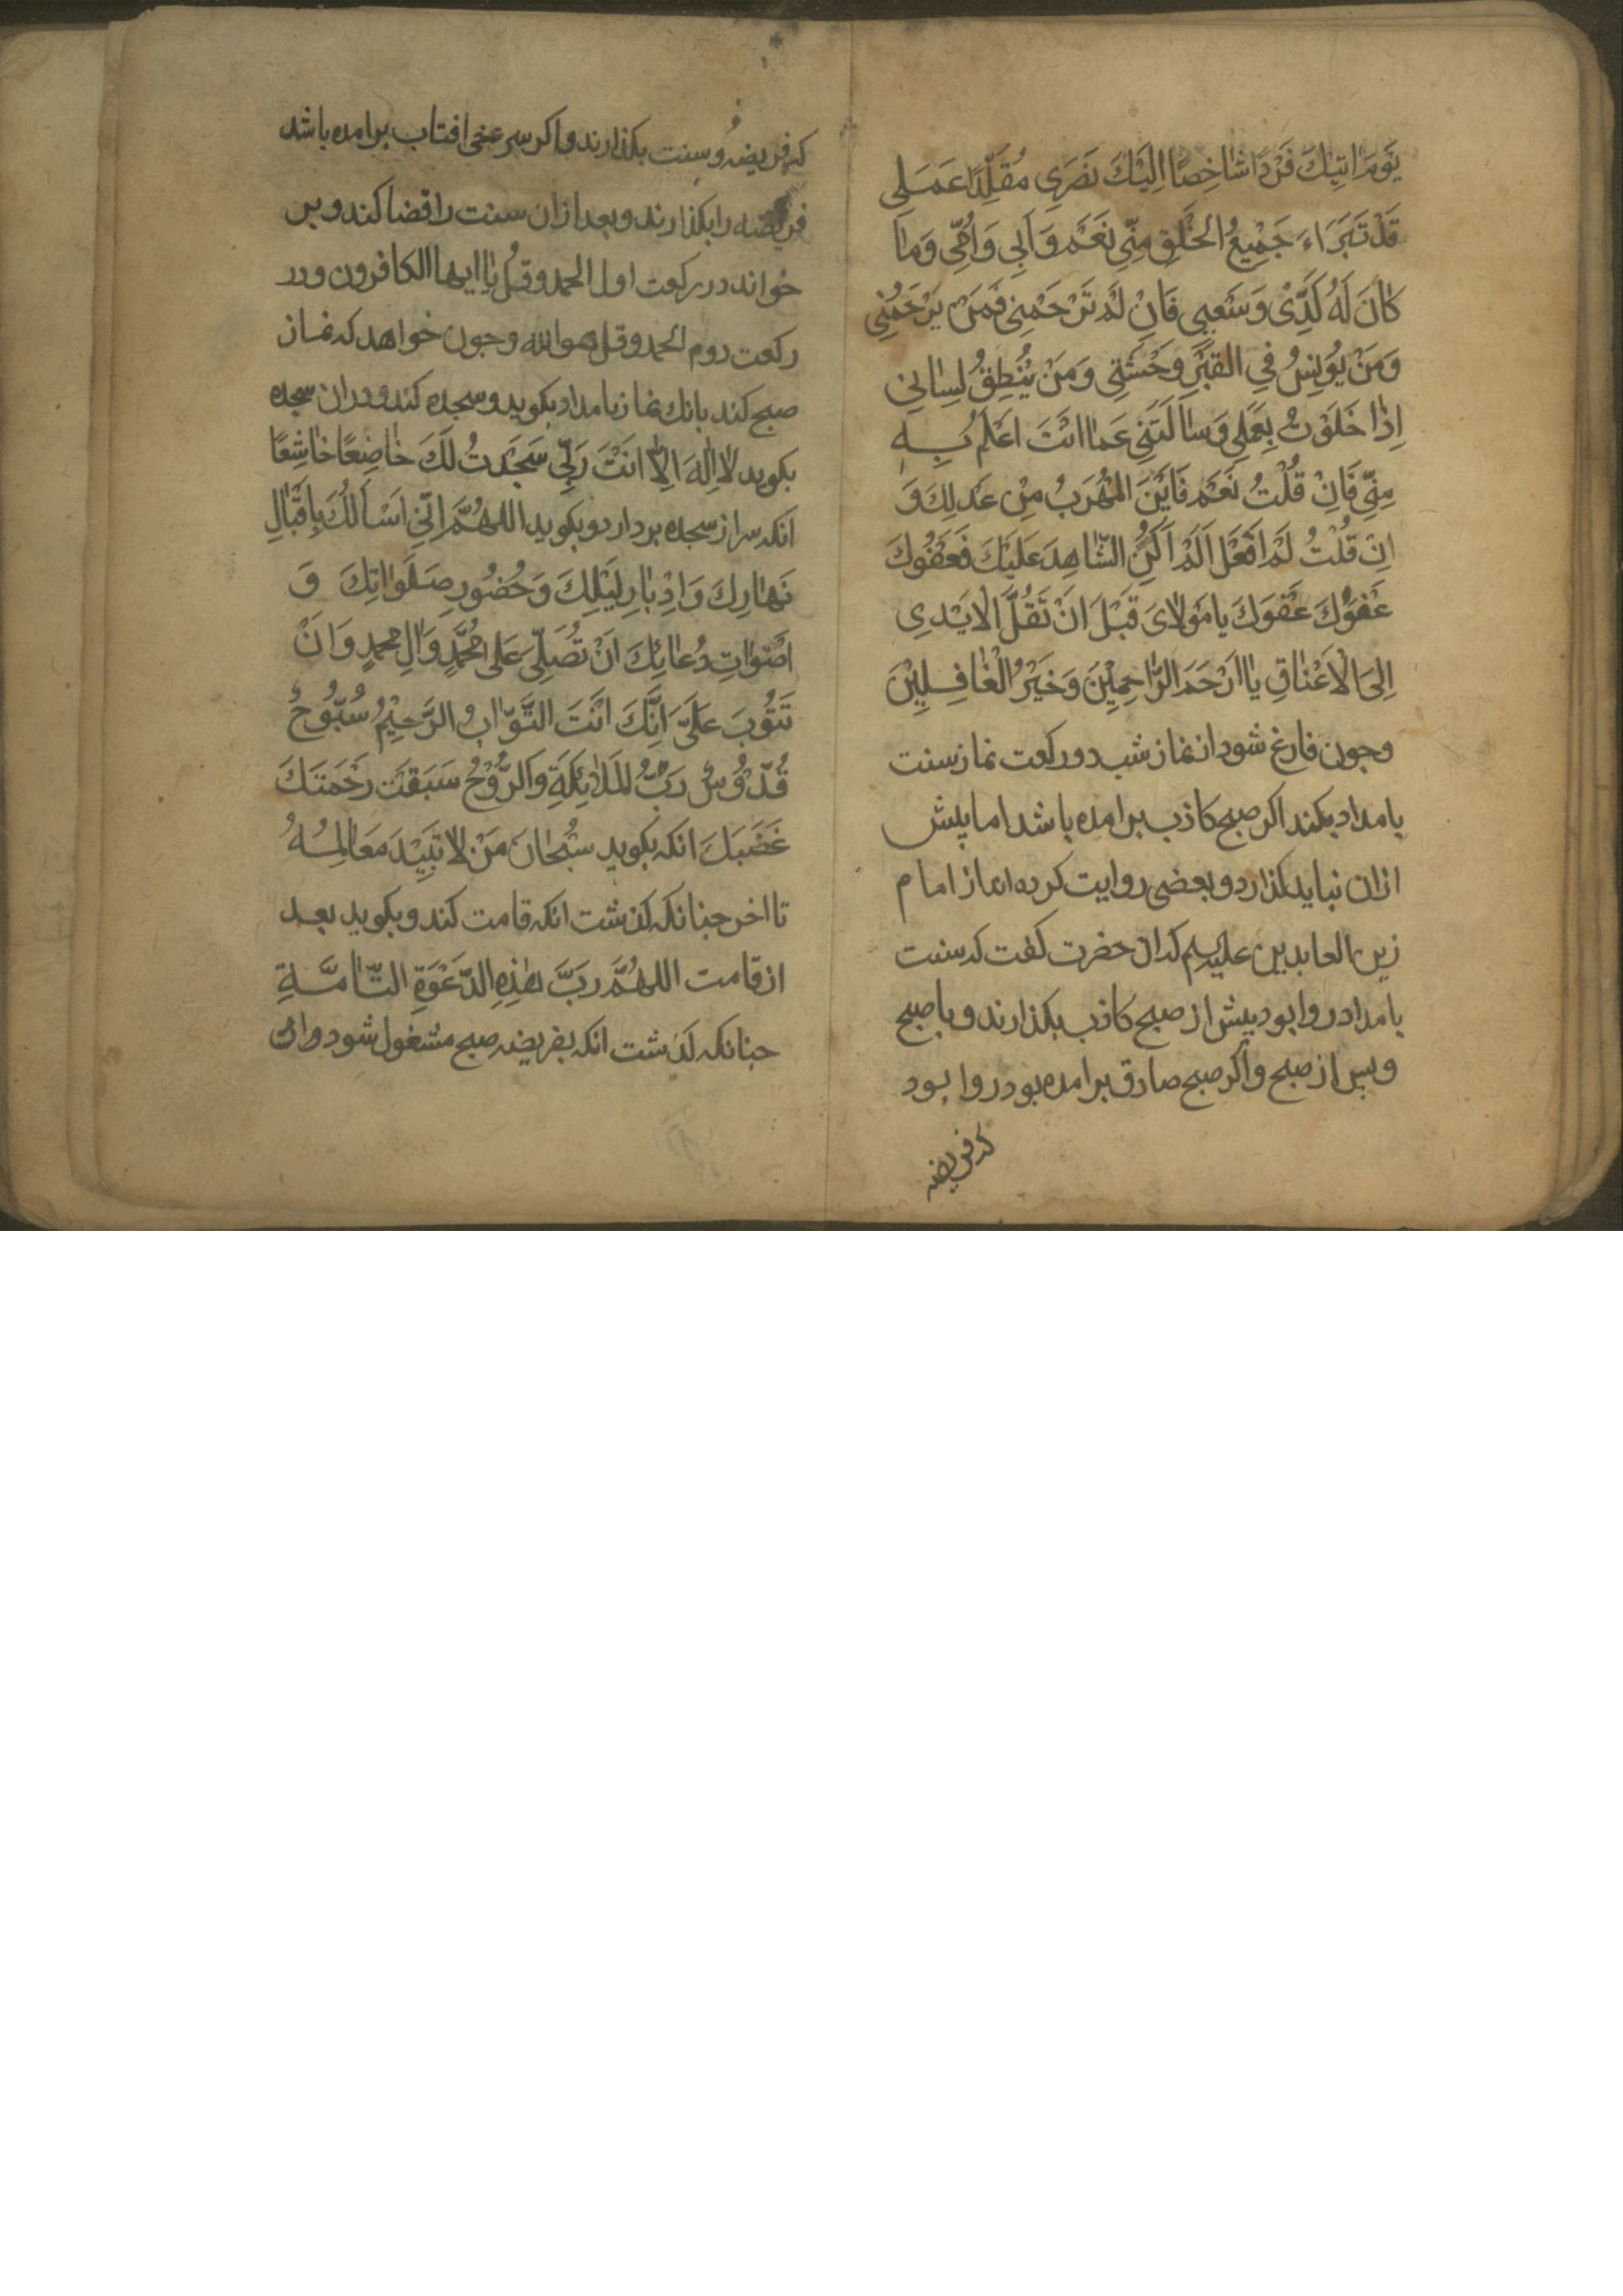 يَوْمَ اٰتِيْكَ فَرْدًا شَاخِصًا اِلَيْكَ بَصَرِي مُقَلِّدًا عَمَلِي
قَدْ تَبَرَّاءَ جَمِيْعُ الخَلْقِ مِنِّي نَعَمْ وَاَبِي وَاُمِّي وَمَنْ
كَانَ لَهُ كَدِّىْ وَسَعْيِي فَاِنْ لَمْ تَرْحَمْنِي فَمَنْ يَرْحَمُنِي
وَمَنْ يُوْنِسُ فِي القَبْرِ وَحْشَتِي وَمَنْ يُنْطِقُ لِسَانِي
اِذَا خَلَوْتُ بِعَمَلِي وَسَاَلْتَنِي عَمَّا انْتَ اَعْلَمُ بِهِ
مِنِّي فَاِنْ قُلْتُ نَعَمْ فَاَيْنَ المَهْرَبُ مِنْ عَدْلِكَ وَ
اِنْ قُلْتُ لَمْ اَفْعَلْ اَلَمْ اَكُنِ الشَّاهِدَ عَلَيْكَ فَعَفْوُكَ
عَفْوُكَ عَفْوَكَ يا مَوْلاىَ قَبْلَ اَنْ تَغُلَّ الْاَيْدِى
اِلىَ الْاَعْنَاقِ يَا اَرْحَمَ الرَّاحِمِيْنَ وَخَيْرُ الْغَافِلِيْنَ
وجون فارغ شود از نماز شب دو ركعت نماز سنت
بامداد بكند اكر صبح كاذب برامده باشد اما پيش
ازان نبايد كذارد و بعضى روايت كرده اند از امام
زين العابدين عليه السلم كه ان حضرت كفت كه سنت
بامداد روا بود پيش از صبح كاذب بكذارند و با صبح
و پس از صبح و اكر صبح صادق برامده بود روا بود
كه فريضه
كه فريضه و سنت بكذارند و اكر سرخى افتاب برامده باشد
فريضه را بكذارند و بعد ازان سنت را قضا كند و بر
خواند در ركعت اول الحمد و قُل يا ايها الكافرون و در
ركعت دوم الحمد و قل هو الله و جون خواهد كه نماز
صبح كند بانك نماز بامداد بكويد و سجده كند و دران سجده
بكويد لا اِلٰهَ اِلَّا انْتَ رَبِّي سَجَدْتُ لَكَ خَاضِعًا خَاشِعًا
انكه سر از سجده بردارد و بكويد اللهُمَّ اِنِّي اَسْاَلُكَ بِاِقْبَالِ
نَهَارِكَ وَاِدْبَارِ لَيْلِكَ وَحُضُورِ صَلَوَاتِكَ وَ
اَصْوَاتِ دُعَائِكَ اَنْ تُصَلِّيَ عَلَى مُحَمَّدٍ وَاٰلِ محمدٍ وَاَنْ
تَتُوْبَ عَلَيَّ اِنَّكَ اَنْتَ التَّوَّابُ الرَّحِيْمُ سُبُّوحٌ
قُدُّوْسٌ رَبُّ المَلائِكَةِ وَالرُّوْحُ سَبَقَتْ رَحْمَتَكَ
غَضَبَكَ انكه بكويد سُبْحَانَ مَنْ لا تَبِيْدَ مَعَالِمُهُ
تا اخر جنانكه كذشت انكه قامت كند و بكويد بعد
از قامت اللهُمَّ رَبَّ هٰذِهِ الدَّعْوَةِ التَّامَّةِ
جنانكه كذشت انكه بفريضه صبح مشغول شود و ان